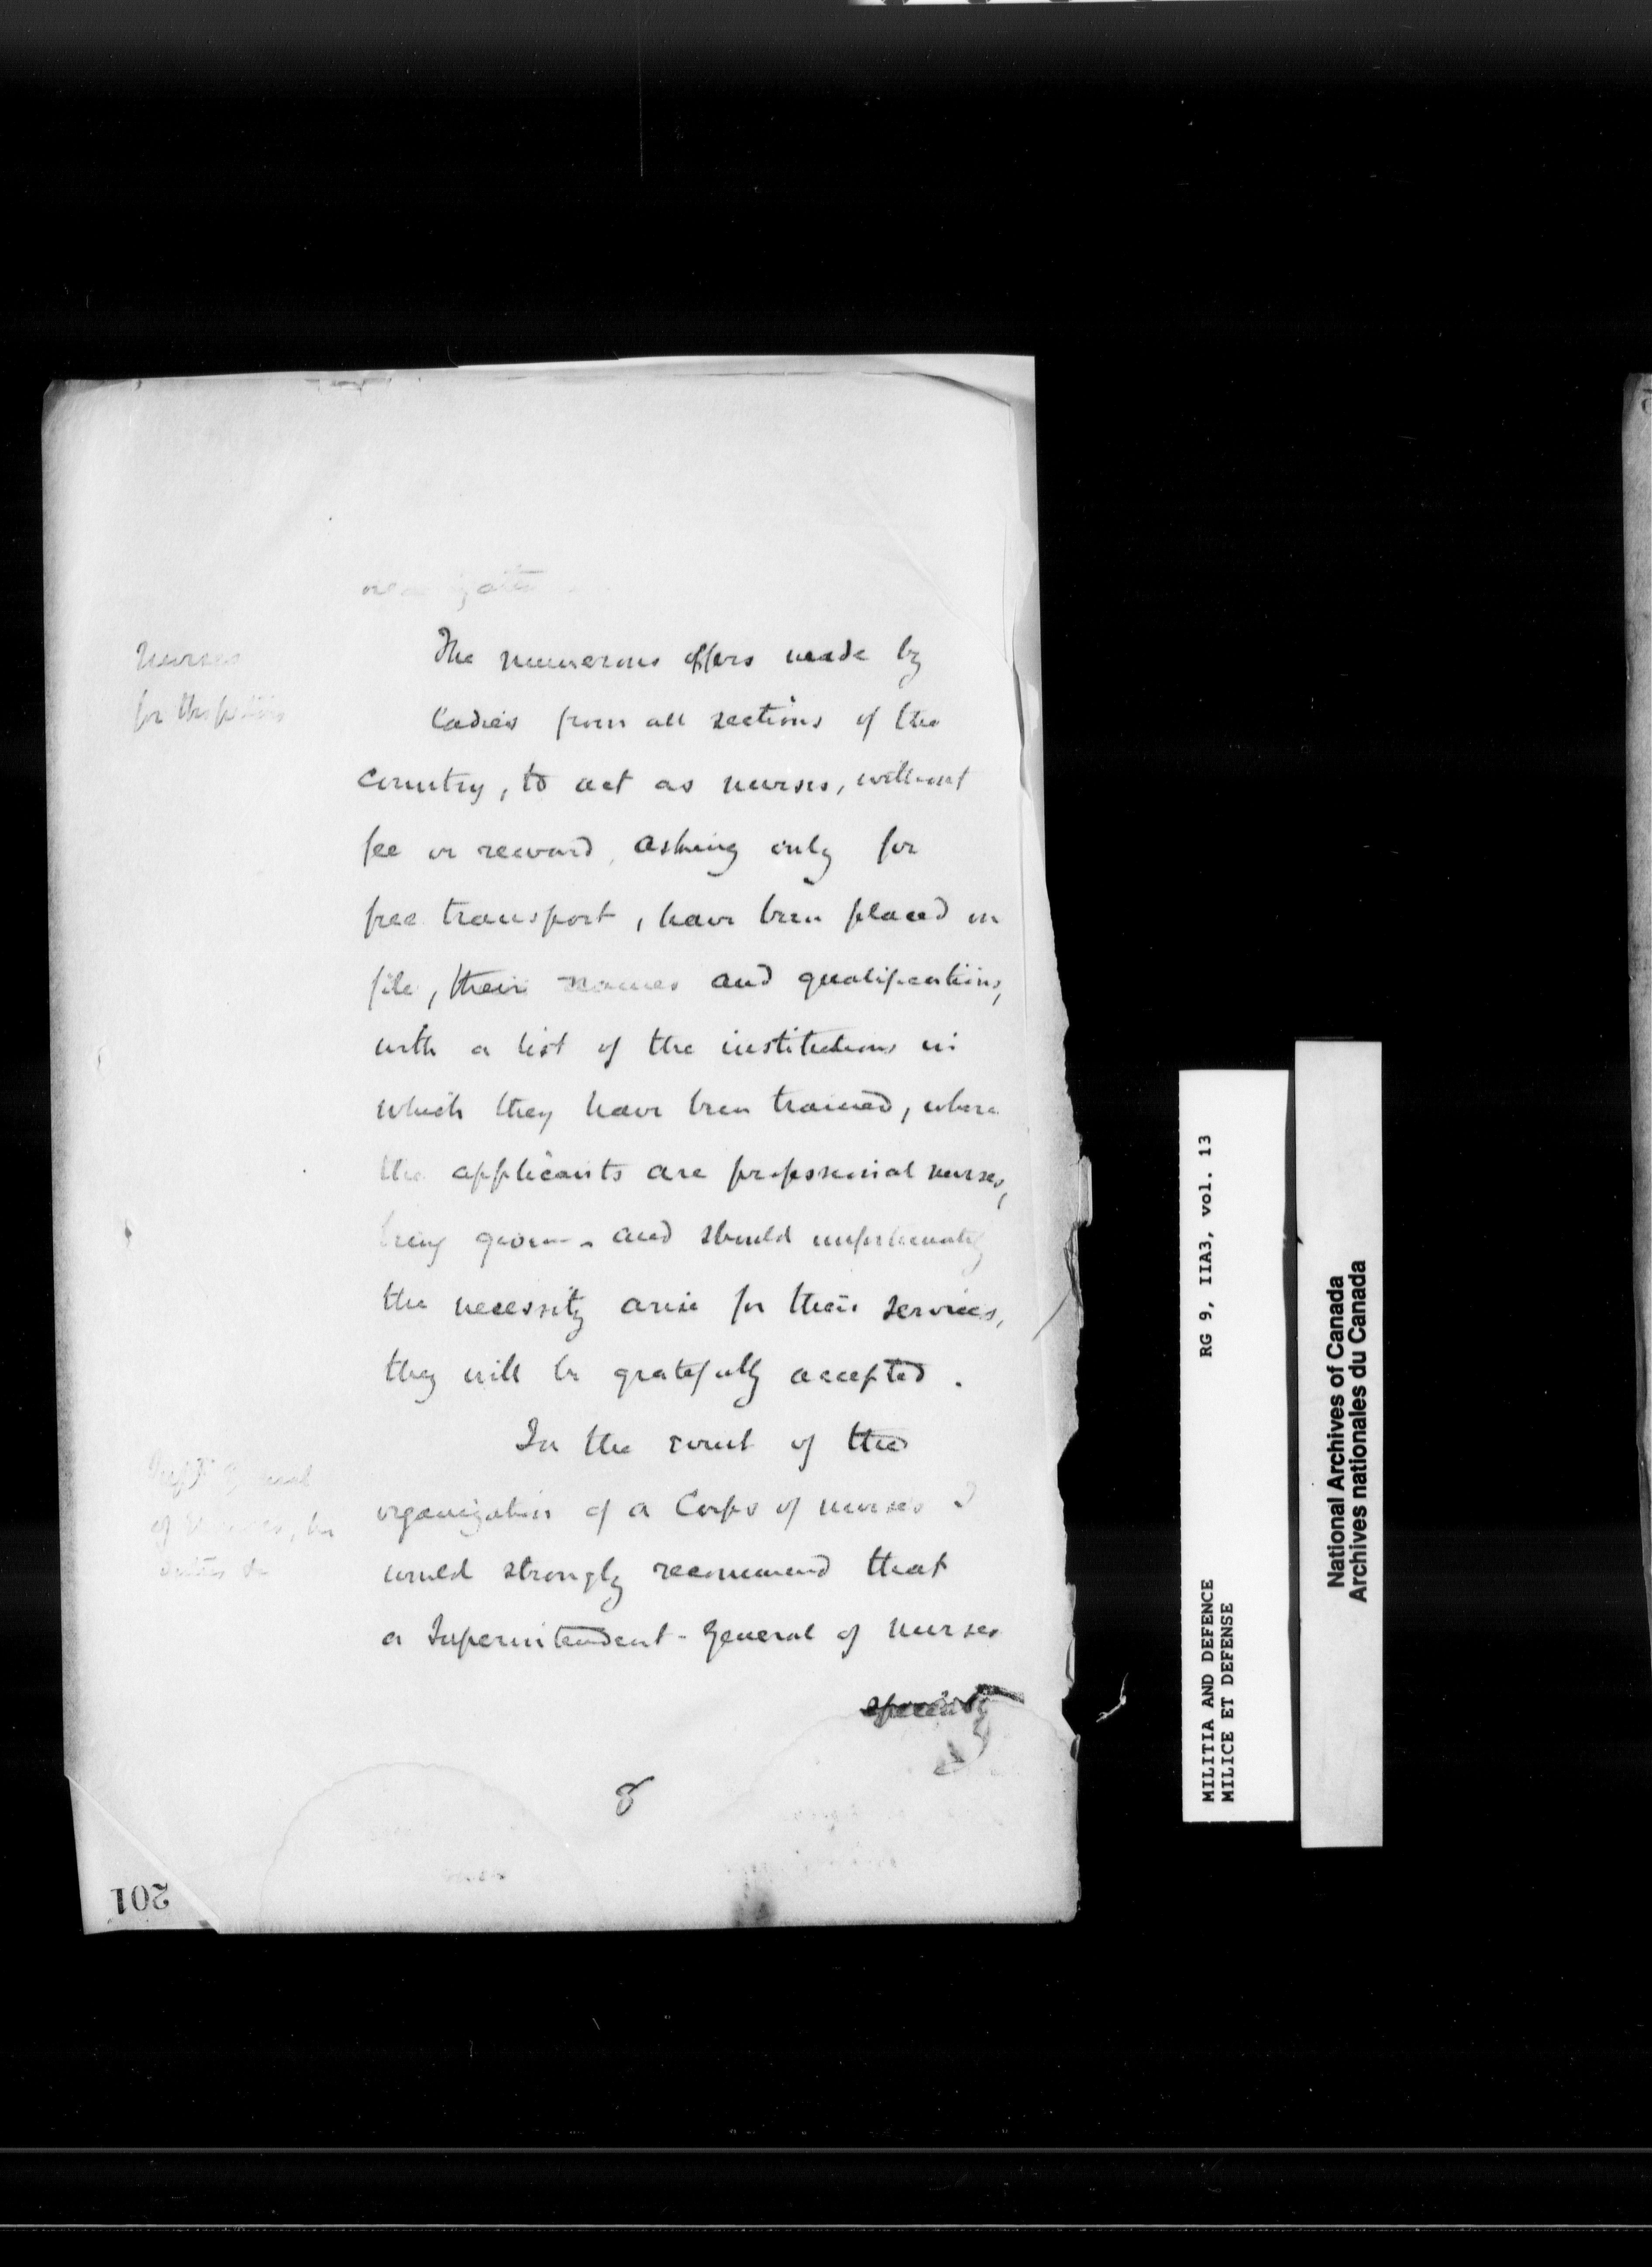 Nurses
for Hospitals
The numerous offers made by
ladies from all sections of the
country, to act as nurses, without
fee or reward, asking only for
free transport, have been placed on
file, their names and qualifications,
with a list of the institutions in
which they have been trained, where
the applicants are professional nurses,
being given - and should unfortunately
the necessity arise for their services,
they will be gratefully accepted.
In the event of the
Supt General
of Nurses, her
duties &c
organization of a Corps of nurses I
would strongly recommend that
a Superintendent-General of Nurses
8
201
MILITIA AND DEFENCE RG 9, IIA3, vol. 13
MILICE ET DEFENSE
National Archives of Canada
Archives nationales du Canada